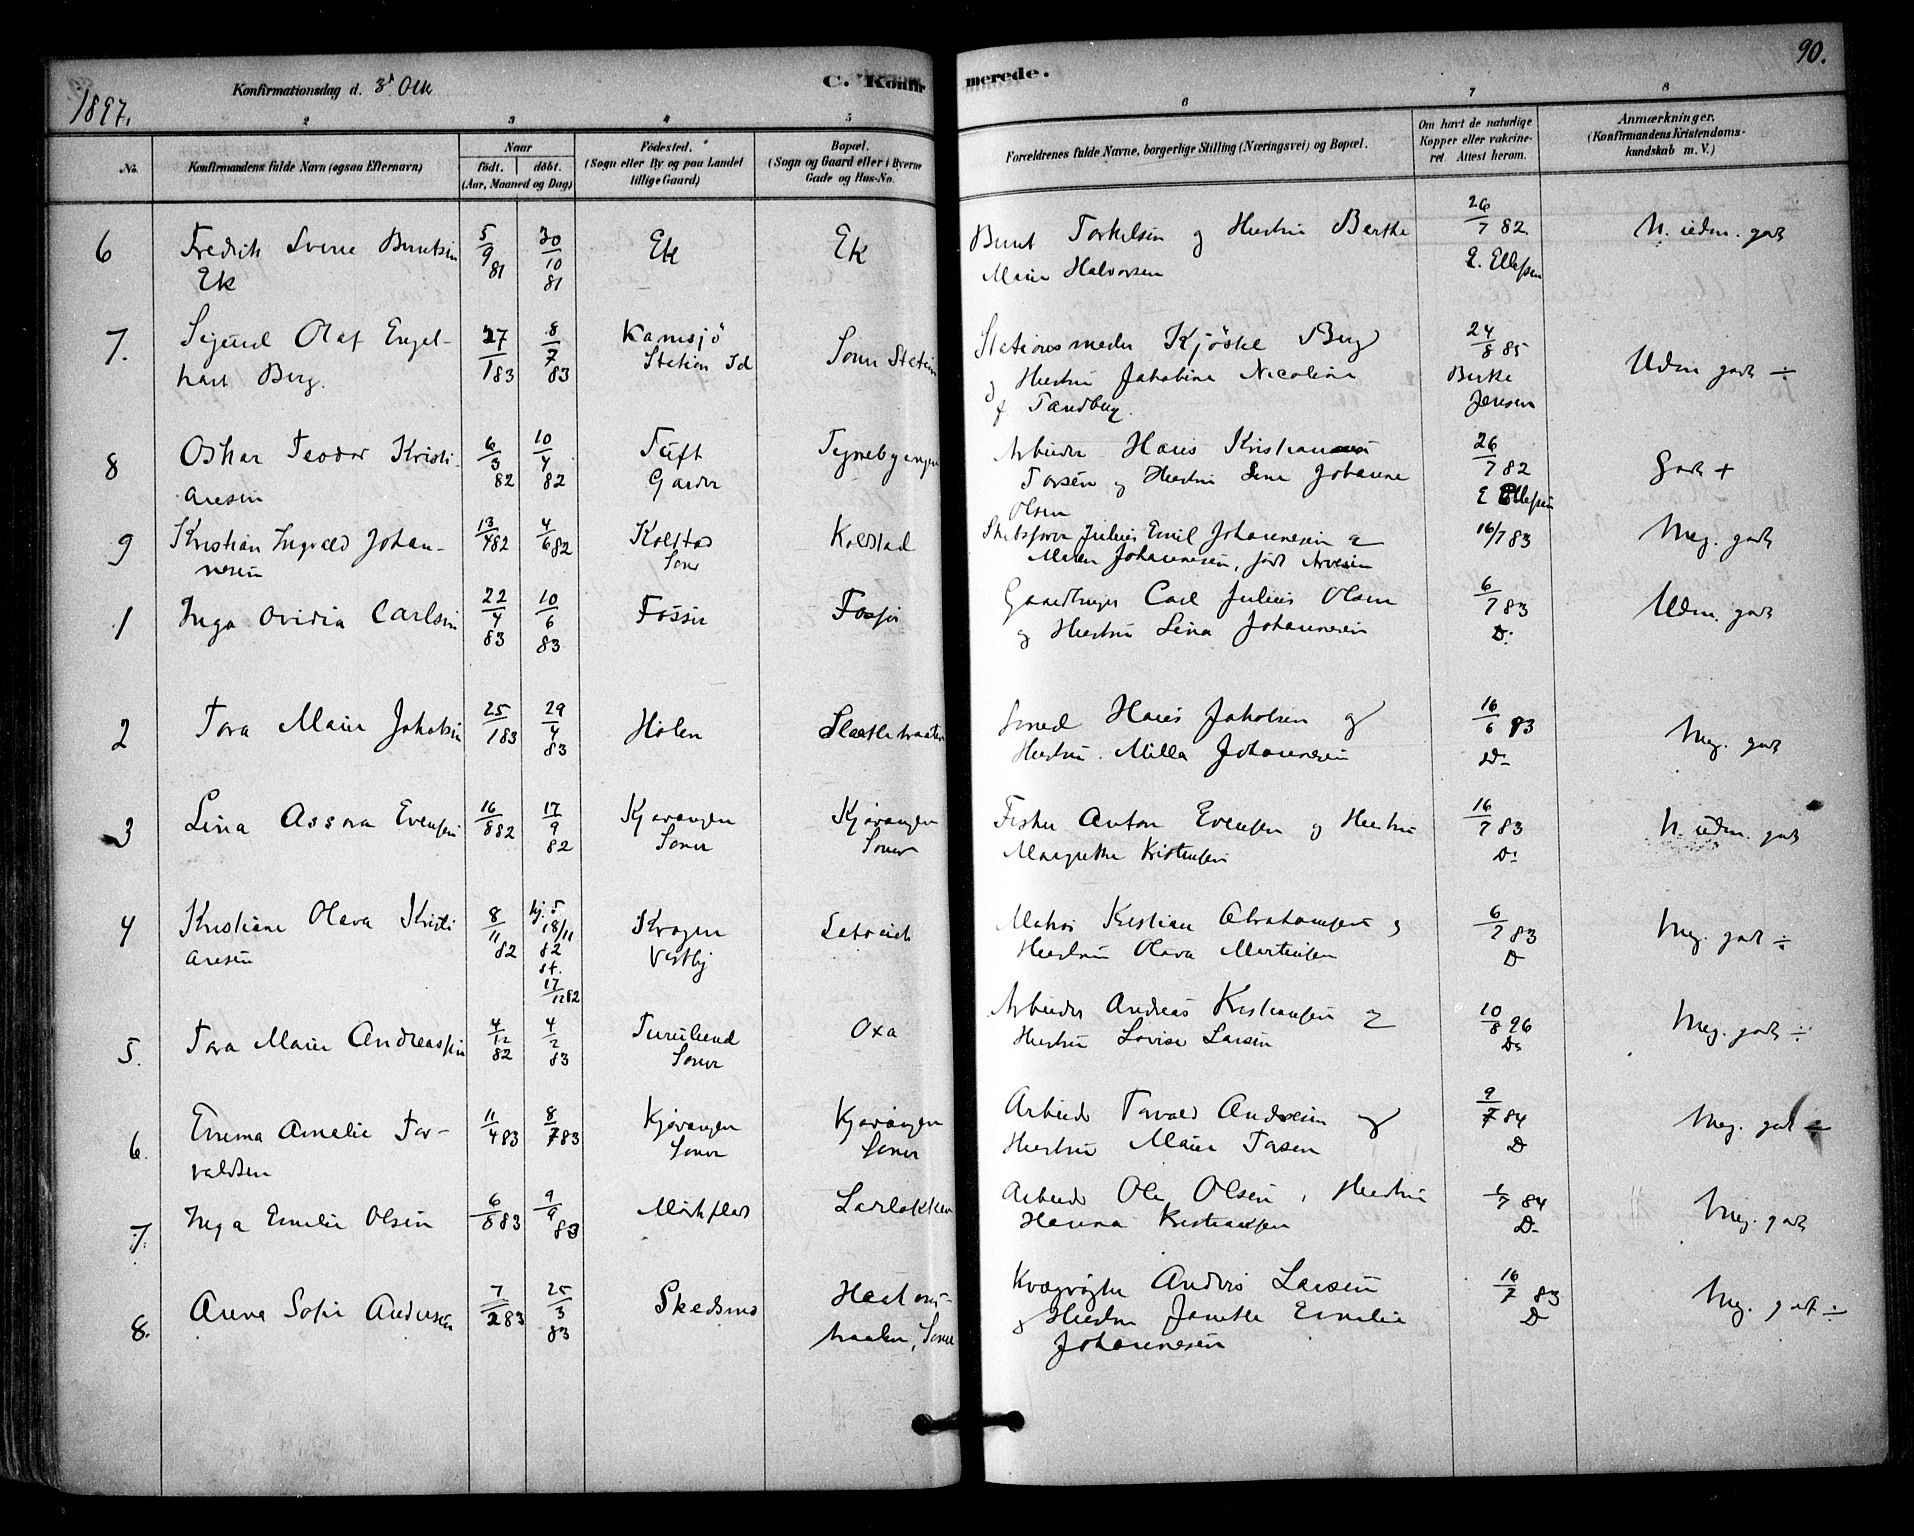 90.
1897.
Konfirmationsdag d. 3' Okt
C. Konfir
merede.
2 3 4 5 6 7 8
No.
Konfirmandens fulde Navn (ogsaa Efternavn)
Naar
født. døbt.
(Aar, Maaned og Dag)
Fødested.
(Sogn eller By og paa Landet
tillige Gaard)
Bopæl.
(Sogn og Gaard eller i Byerne
Gade og Hus-No.
Forældrenes fulde Navne, borgerlige Stilling (Næringsvei) og Bopæl.
Om havt de naturlige
Kopper eller vakcine-
ret Attest herom.
Anmærkninger.
(Konfirmandens Kristendoms-
kundskab m. V.)
6 Fredrik Berntsen 5/9 81 30/10 81 Ek Ek Bernt Torkelsen og Hustru Berthe 26/7 82 N. udm. godt
Ek Marie Halvorsen E. Ellefsen
7. Sigurd Olaf Engel- 27/1 83 8/7 83 Kornsjö Soner Station Kjöstel Berg 24/8 85 Udm godt ÷
hart Berg. Station Id og Hustru Jakobine Nicoline Berthe
f Tandberg. Jensen
8 Oskar Teodor Kristi- 6/3 82 10/4 82 Tuft Arbeider Hans Kristian 26/7 82 Godt +
ansen Garder Torsen og Hustru Lina Johanne E Ellefsen
Olsen
9 Kristian Ingvald Johan- 13/4 82 4/6 82 Kolstad Kolstad Julius Emil Johannesen og 16/7 83 Meg. godt
nesen Soner Maren Johannesen, født Arvesen
1 Inga Ovidia Carlsen 22/4 83 10/6 83 Fosser Fosser Gaardbruger Carl Julius Olsen 6/7 83 Udm. godt
og Hustru Lina Johannesen D.
2 Tora Marie Jakobsen 25/1 83 29/4 83 Hølen Smed Hans Jakobsen og 16/6 83 Meg. godt
Hustru Milla Johannesen D.
3 Lina Assora Evensen 16/8 82 17/9 82 Kjøvangen Kjøvangen Fisker Anton Evensen og Hustru 16/7 83 N. udm. godt
Soner Soner Margrethe Kristensen D.
4 Kristiane Olava Kristi 8/11 82 hj. d 18/11 82 st. 17/12 82 Krogen Matros Kristian Abrahamsen og 6/7 83 Meg. godt ÷
ansen Vestby Hustru Olava Martinsen D
5. Tora Marie Andreassen 4/12 82 4/2 83 Oxa Arbeider Andreas Kristiansen og 10/8 96 Meg. godt ÷
Soner Hustru Lovise Larsen D.
6. Emma Amalie Tor- 11/4 83 8/7 83 Kjøvangen Kjøvangen Arbeider Torvald Andresen og 9/7 84 Meg. godt ÷
valdsen Soner Soner Hustru Marie Torsen D
7. Inga Emilie Olsen 6/8 83 9/9 83 Arbeider Ole Olsen, Hustru 1/7 84 Meg. godt
Hanna Kristiansen D.
8. Anna Sofie Andersen 7/2 83 25/3 83 Skedsmo Kvægrøgter Anders Larsen 16/7 83 Meg. godt ÷
Soner og Hustru Janette Emilie D
Johannesen